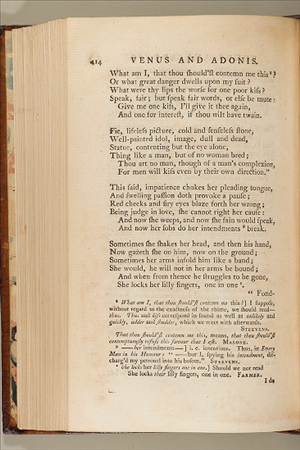 414 VENUS AND ADONIS.
What am I, that thou ſhould'ſt contemn me this ¹?
Or what great danger dwells upon my ſuit?
What were thy lips the worſe for one poor kiſs?
Speak, fair; but ſpeak fair words, or elſe be mute:
Give me one kiſs, I'll give it thee again,
And one for intereſt, if thou wilt have twain.
Fie, lifeleſs picture, cold and ſenſeleſs ſtone,
Well-painted idol, image, dull and dead,
Statue, contenting but the eye alone,
Thing like a man, but of no woman bred;
Thou art no man, though of a man's complexion,
For men will kiſs even by their own direction."
This ſaid, impatience chokes her pleading tongue,
And ſwelling paſſion doth provoke a pauſe;
Red cheeks and firy eyes blaze forth her wrong;
Being judge in love, ſhe cannot right her cauſe:
And now ſhe weeps, and now ſhe fain would ſpeak,
And now her ſobs do her intendments break.
Sometimes ſhe ſhakes her head, and then his hand,
Now gazeth ſhe on him, now on the ground;
Sometimes her arms infold him like a band;
She would, he will not in her arms be bound;
And when from thence he ſtruggles to be gone,
She locks her lilly fingers, one in one.
" Fond-
What am I, that thou ſhould'ſt contemn me this?] I ſuppoſe,
without regard to the exactneſs of the rhime, we ſhould read—
thus. This and kiſs correſpond in ſound as well as
quickly, adder and ſhudder, which we meet with afterwards.
STEEVENS.
That thou ſhould'ſt contemn me this, means, that thou ſhould'ſt
contemptuouſly refuſe this favour that I aſk. MALONE.
— her intendments—] i. e. intentions. Thus, in Every
Man in his Humour: " —but I, ſpying his intendment, diſ-
charg'd my petronel into his boſom." STEEVENS.
She locks her lilly fingers one in one.] Should we not read
She locks their lilly fingers, one in one. FARMER.
I do